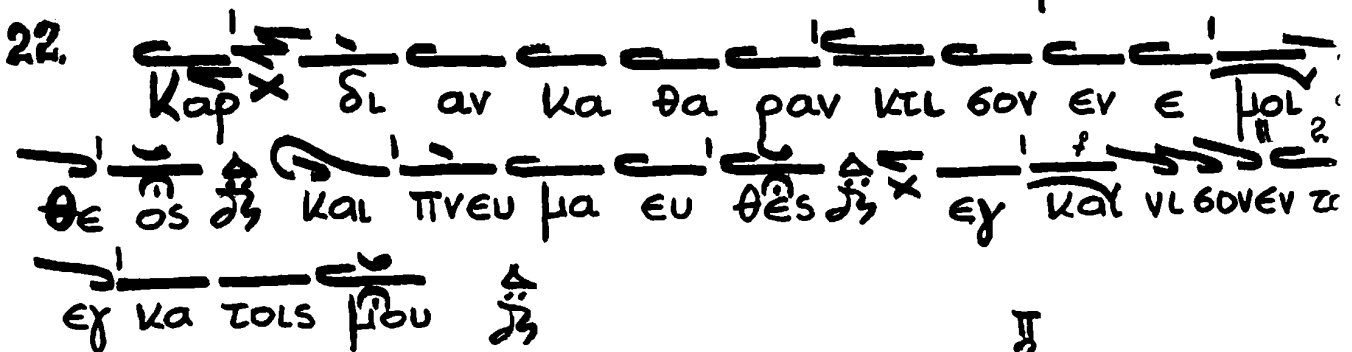 22. Καρ δι αν κα θα ραν κτι σον εν ε μοι
θε ος και πνευ μα ευ θες εγ και νι σον εν τοις
εγ κα τοις μου